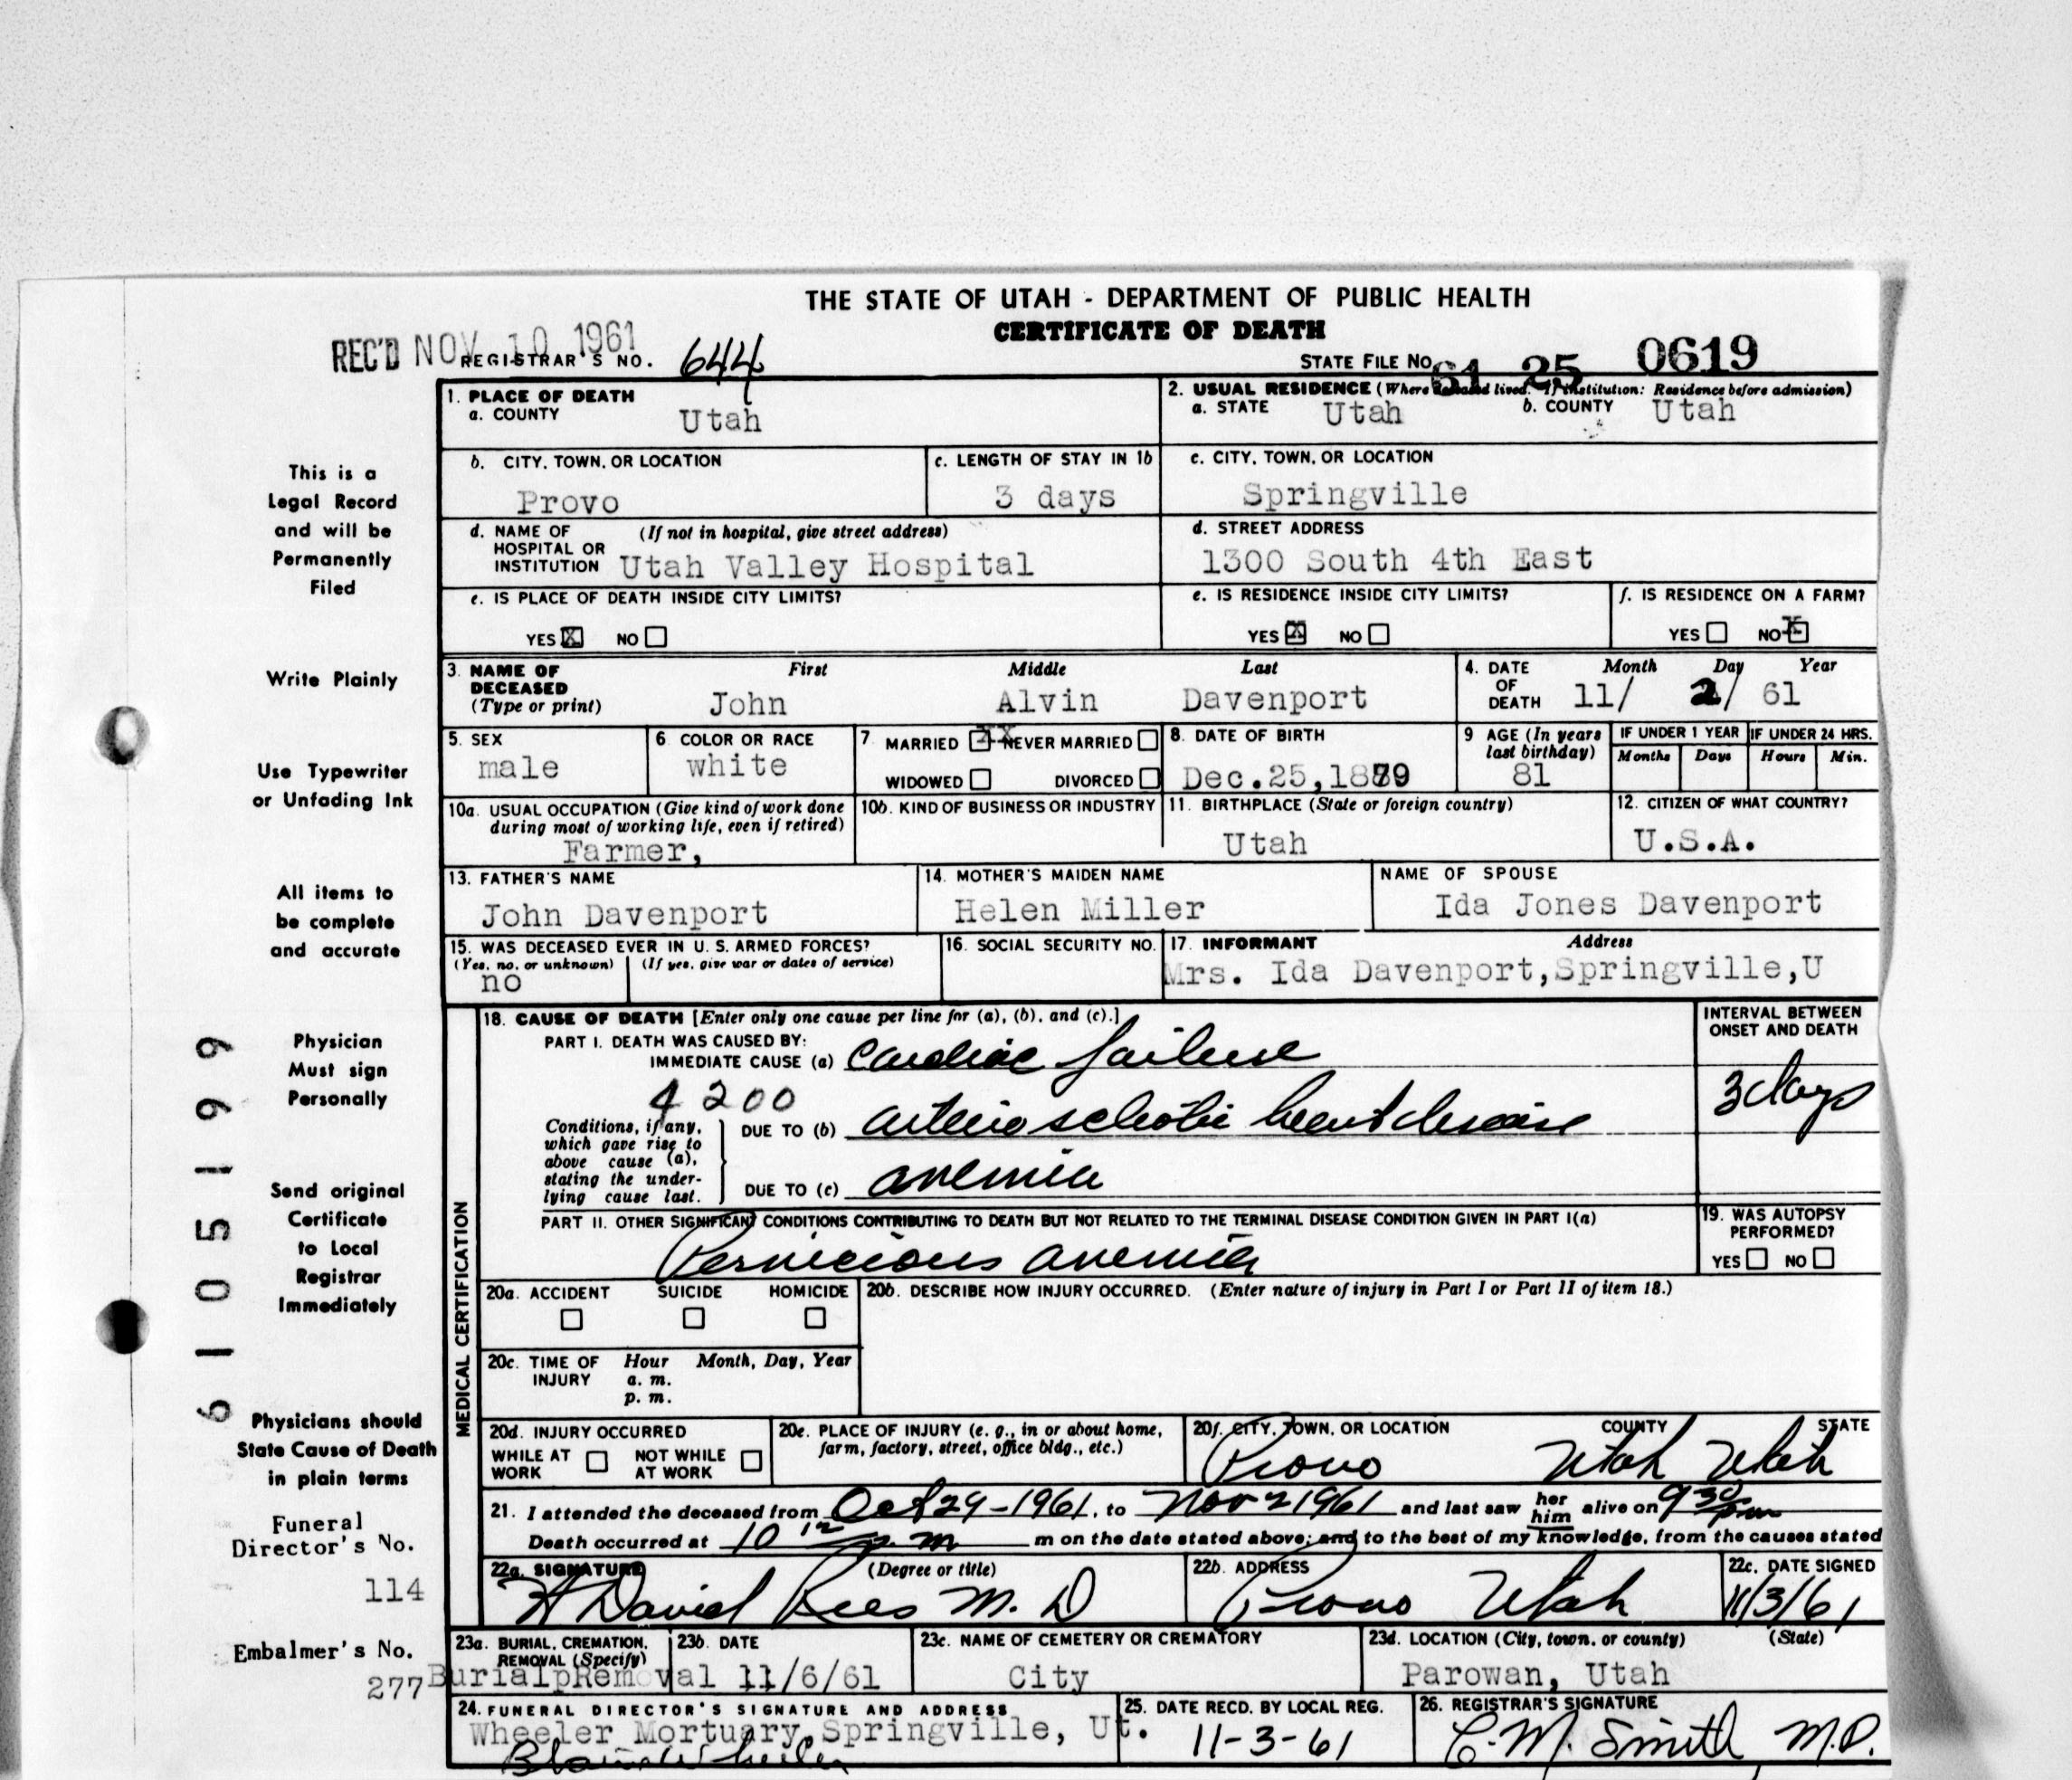 THE STATE OF UTAH - DEPARTMENT OF PUBLIC HEALTH
CERTIFICATE OF DEATH
REC'D NOV 10 1961
REGISTRAR'S NO. 644
STATE FILE NO. 61 25 0619
1. PLACE OF DEATH
a. COUNTY Utah
2. USUAL RESIDENCE (Where deceased lived. If institution: Residence before admission)
a. STATE Utah b. COUNTY Utah
b. CITY, TOWN, OR LOCATION
Provo
c. LENGTH OF STAY IN 1b
3 days
c. CITY, TOWN, OR LOCATION
Springville
d. NAME OF (If not in hospital, give street address)
HOSPITAL OR
INSTITUTION Utah Valley Hospital
d. STREET ADDRESS
1300 South 4th East
e. IS PLACE OF DEATH INSIDE CITY LIMITS?
YES X NO
e. IS RESIDENCE INSIDE CITY LIMITS?
YES X NO
f. IS RESIDENCE ON A FARM?
YES NO X
3. NAME OF
DECEASED
(Type or print)
First Middle Last
John Alvin Davenport
4. DATE
OF
DEATH
Month Day Year
11/ 2/ 61
5. SEX
male
6. COLOR OR RACE
white
7. MARRIED XX NEVER MARRIED
WIDOWED DIVORCED
8. DATE OF BIRTH
Dec.25,1879
9. AGE (In years
last birthday)
81
IF UNDER 1 YEAR
Months Days
IF UNDER 24 HRS.
Hours Min.
10a. USUAL OCCUPATION (Give kind of work done
during most of working life, even if retired)
Farmer,
10b. KIND OF BUSINESS OR INDUSTRY
11. BIRTHPLACE (State or foreign country)
Utah
12. CITIZEN OF WHAT COUNTRY?
U.S.A.
13. FATHER'S NAME
John Davenport
14. MOTHER'S MAIDEN NAME
Helen Miller
NAME OF SPOUSE
Ida Jones Davenport
15. WAS DECEASED EVER IN U. S. ARMED FORCES?
(Yes, no, or unknown) (If yes, give war or dates of service)
no
16. SOCIAL SECURITY NO.
17. INFORMANT Address
Mrs. Ida Davenport,Springville,U
MEDICAL CERTIFICATION
18. CAUSE OF DEATH [Enter only one cause per line for (a), (b), and (c).]
PART I. DEATH WAS CAUSED BY:
IMMEDIATE CAUSE (a) cardiac failure
4200
Conditions, if any,
which gave rise to
above cause (a),
stating the under-
lying cause last.
DUE TO (b) arterio sclerotic heart disease
DUE TO (c) anemia
INTERVAL BETWEEN
ONSET AND DEATH
3 days
PART II. OTHER SIGNIFICANT CONDITIONS CONTRIBUTING TO DEATH BUT NOT RELATED TO THE TERMINAL DISEASE CONDITION GIVEN IN PART I(a)
Pernicious anemia
19. WAS AUTOPSY
PERFORMED?
YES NO
20a. ACCIDENT SUICIDE HOMICIDE
20b. DESCRIBE HOW INJURY OCCURRED. (Enter nature of injury in Part I or Part II of item 18.)
20c. TIME OF INJURY
Hour Month, Day, Year
a. m.
p. m.
20d. INJURY OCCURRED
WHILE AT WORK NOT WHILE AT WORK
20e. PLACE OF INJURY (e. g., in or about home,
farm, factory, street, office bldg., etc.)
20f. CITY, TOWN, OR LOCATION COUNTY STATE
Provo Utah Utah
21. I attended the deceased from Oct 29-1961, to Nov 2 1961 and last saw her him alive on 9 30 pm
Death occurred at 10 12 p.m m on the date stated above; and to the best of my knowledge, from the causes stated
22a. SIGNATURE (Degree or title)
H David Rees M. D
22b. ADDRESS
Provo Utah
22c. DATE SIGNED
11/3/61
23a. BURIAL, CREMATION,
REMOVAL (Specify)
BurialpRemoval
23b. DATE
11/6/61
23c. NAME OF CEMETERY OR CREMATORY
City
23d. LOCATION (City, town, or county) (State)
Parowan, Utah
24. FUNERAL DIRECTOR'S SIGNATURE AND ADDRESS
Wheeler Mortuary,Springville, Ut.
Wheeler
25. DATE RECD. BY LOCAL REG.
11-3-61
26. REGISTRAR'S SIGNATURE
C. M. Smith, M.D.
This is a
Legal Record
and will be
Permanently
Filed
Write Plainly
Use Typewriter
or Unfading Ink
All items to
be complete
and accurate
Physician
Must sign
Personally
Send original
Certificate
to Local
Registrar
Immediately
Physicians should
State Cause of Death
in plain terms
Funeral
Director's No.
114
Embalmer's No.
277
6105199